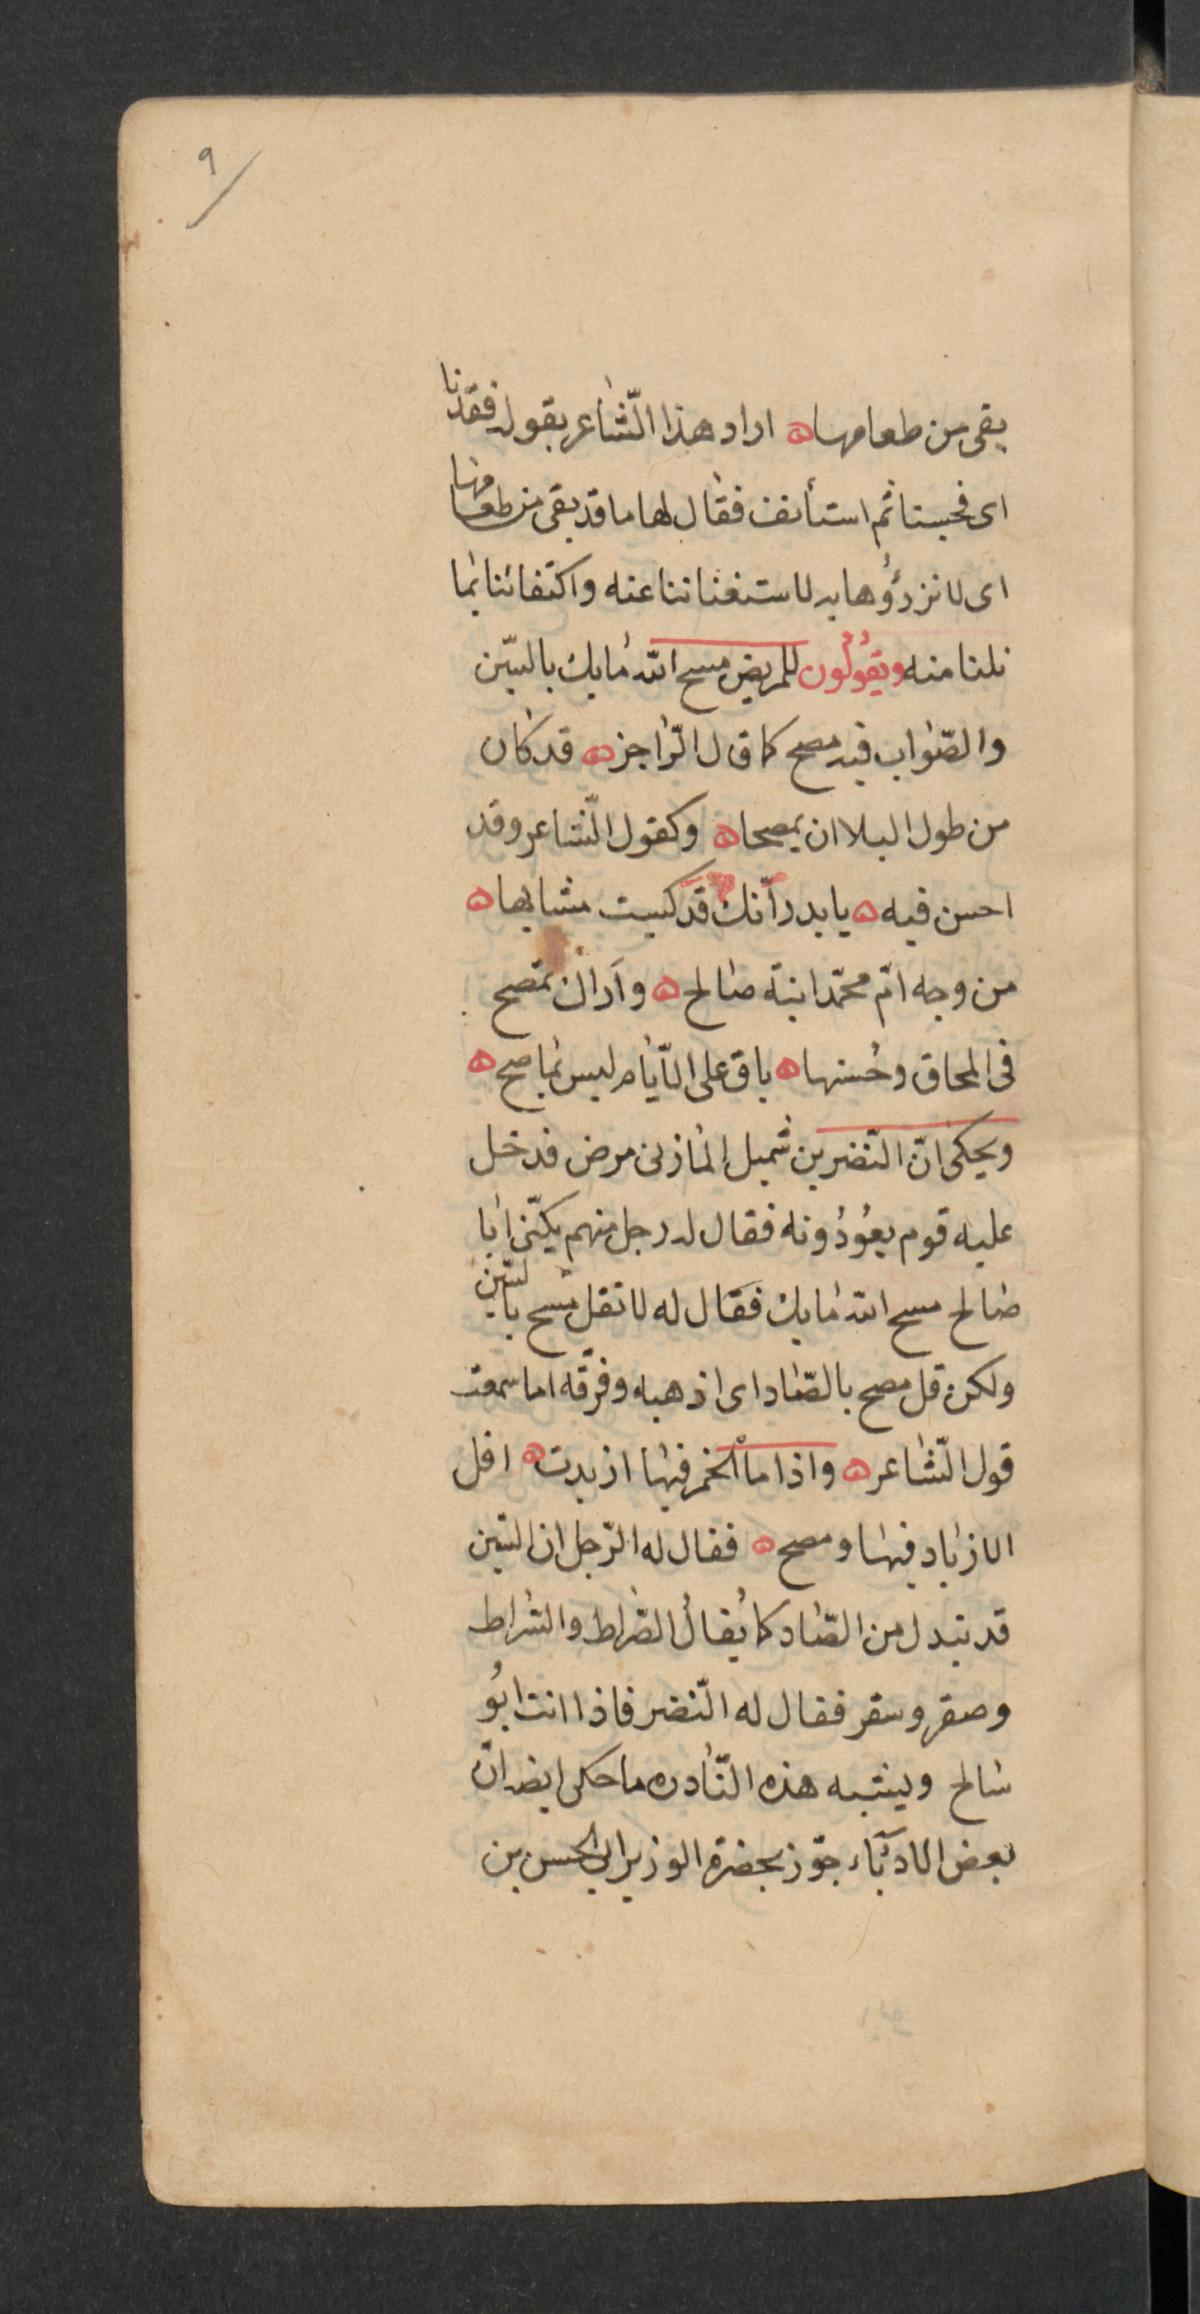 ٩
بقى من طعامها ه اراد هذا الشّاعر بقوله فقدنا
اى فحسبنا ثم استأنف فقال لها ما قد بقى من طعامها
اى لا نزرؤُها به لاستغنائنا عنه واكتفائنا بما
نلنا منه ويقولُون للمريض مسح الله ما بك بالسّين
والصّواب فيه مصح كما قال الرّاجز ه قد كان
من طول البلا ان يمصحا ه وكقول الشّاعر وقد
احسن فيه ه يا بدر أنّك قد كسيت مشابها ه
من وجه امّ محمّد ابنة صالح ه وأراك تمصح
فى المحاق وحُسنها ه باق على الأيّام ليس بماصح ه
ويحكى انّ النّضر بن شميل المازنى مرض فدخل
عليه قوم يعُودُونه فقال له رجل منهم يكنّى ابا
صالح مسح الله ما بك فقال له لا تقل مسح بالسّين
ولكن قل مصح بالصّاد اى اذهبه وفرّقه اما سمعت
قول الشّاعر ه واذا ما الخمر فيها ازبدت ه افل
الازباد فيها ومصح ه فقال له الرّجل ان السّين
قد تبدل من الصّاد كما يُقالُ الصّراط والسّراط
وصقر وسقر فقال له النّضر فاذا انت ابُو
سالح ويشبه هذه النّادره ما حكى ايضا انّ
بعض الادبّاء جوّز بحضرة الوزير ابى الحسن بن